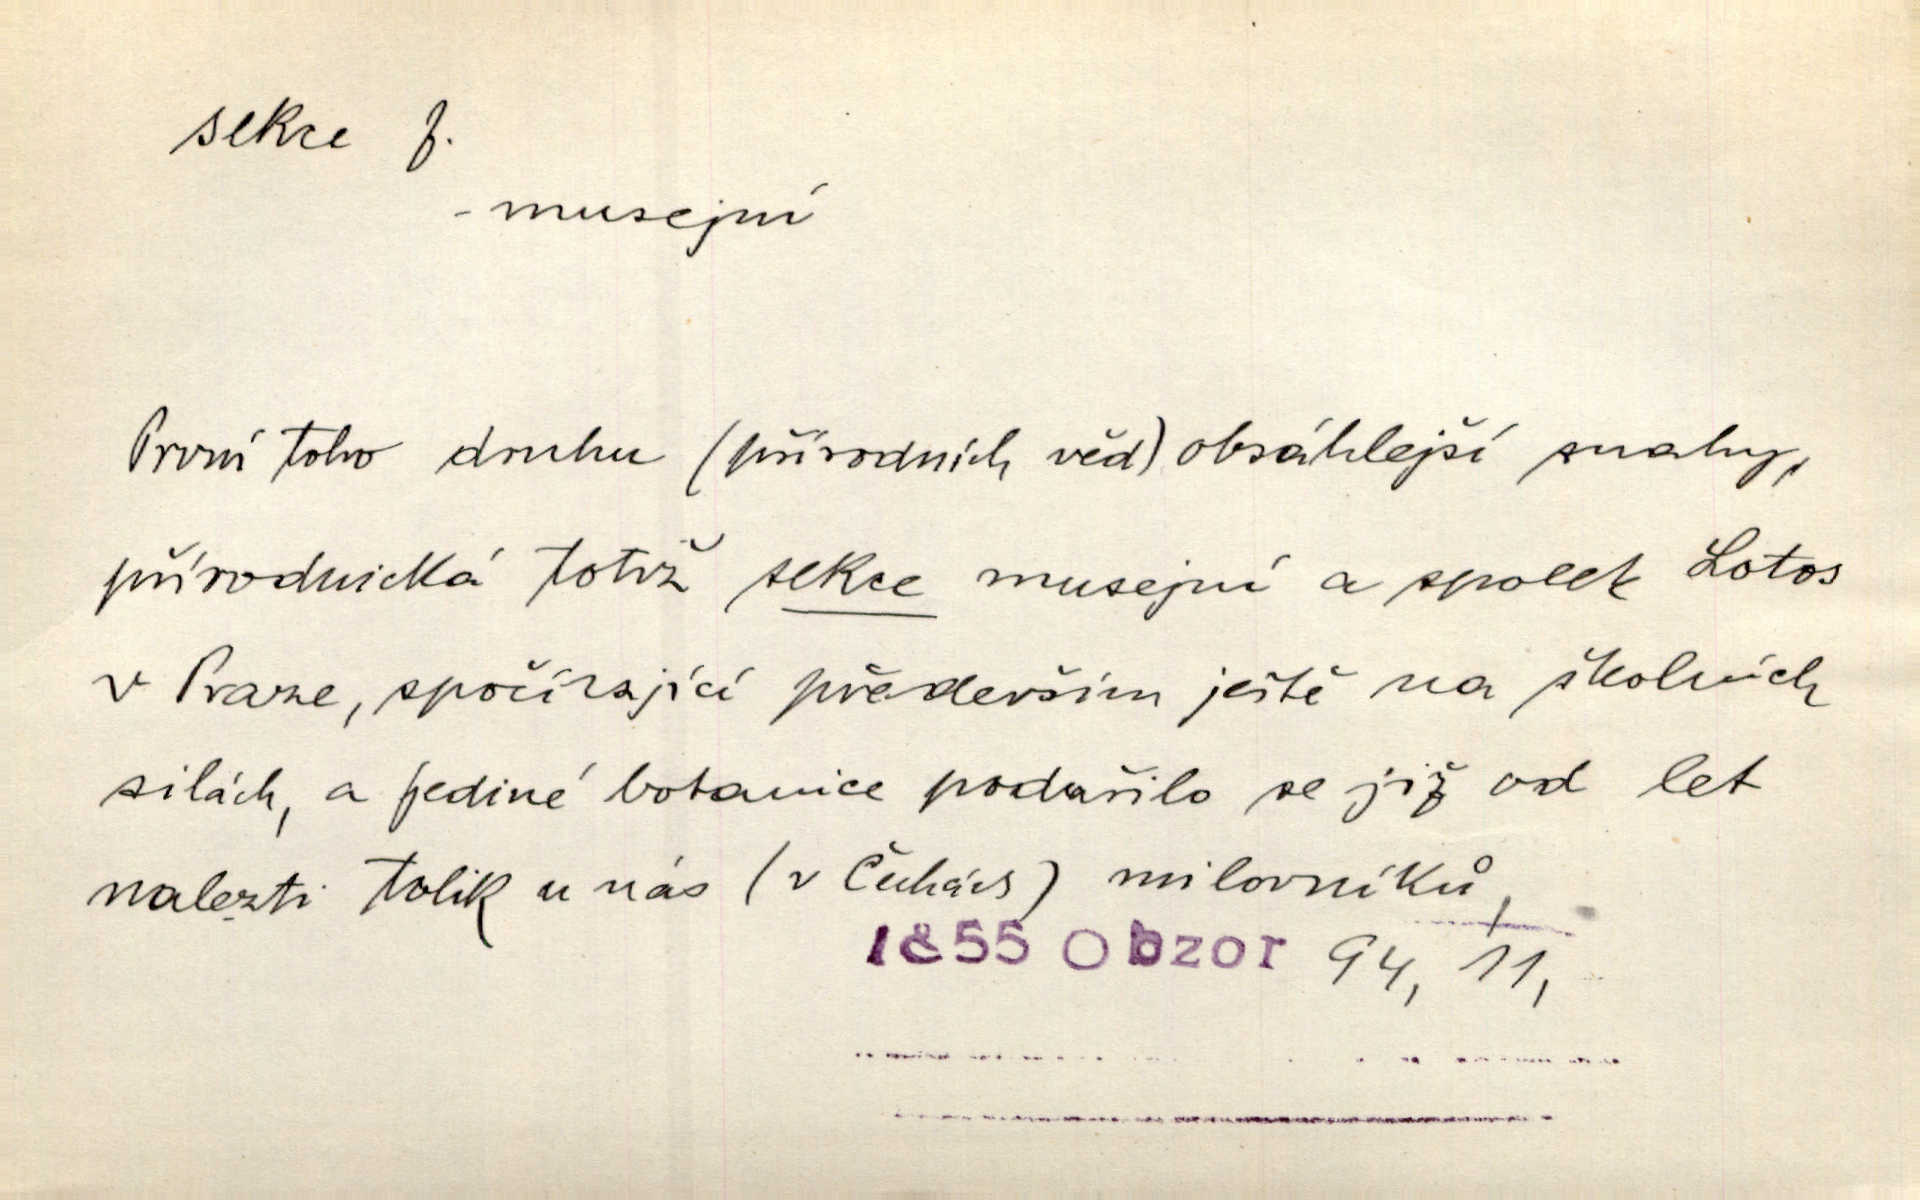 sekce f.
- musejní
První toho druhu (přírodních věd) obsáhlejší snahy,
přírodnická totiž sekce musejní a spolek Lotos
v Praze, spočívající především ještě na školních
silách, a jediné botanice podařilo se již od let
nalezti tolik u nás (v Čechách) milovníků,
1855 Obzor 94, 11,